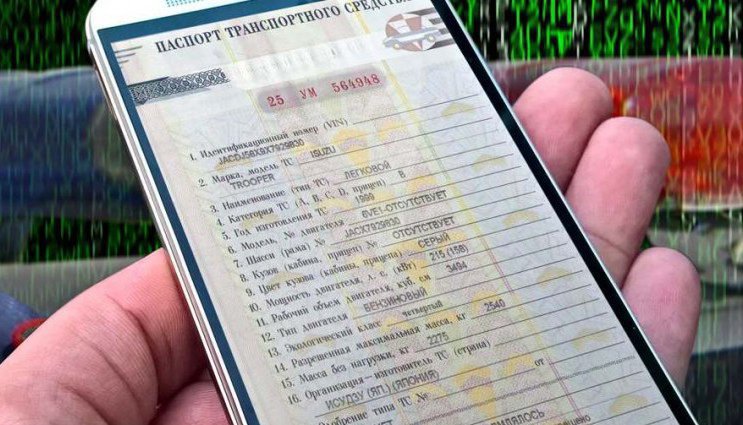 ПАСПОРТ ТРАНСПОРТНОГО СРЕДСТВА
25 УМ 564948
1. Идентификационный номер (VIN)
JACDJ58X8X7929830
2. Марка, модель ТС ISUZU
TROOPER
3. Наименование (тип ТС) ЛЕГКОВОЙ
4. Категория ТС (A, B, C, D, прицеп) B
5. Год изготовления ТС 1999
6. Модель, № двигателя 6VE1-ОТСУТСТВУЕТ
7. Шасси (рама) № JACX7929830
8. Кузов (кабина, прицеп) № ОТСУТСТВУЕТ
9. Цвет кузова (кабины, прицепа) СЕРЫЙ
10. Мощность двигателя, л. с. (кВт) 215 (158)
11. Рабочий объем двигателя, куб. см 3494
12. Тип двигателя БЕНЗИНОВЫЙ
13. Экологический класс четвертый
14. Разрешенная максимальная масса, кг 2540
15. Масса без нагрузки, кг 2275
16. Организация—изготовитель ТС (страна)
ИСУДЗУ (ЯП.) (ЯПОНИЯ)
от